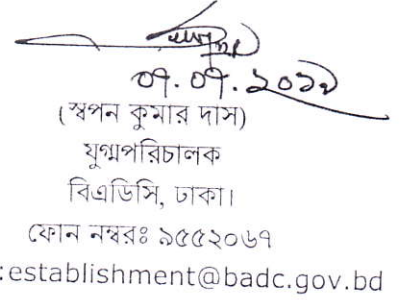 ০৭.০৭.২০১৯
(স্বপন কুমার দাস)
যুগ্মপরিচালক
বিএডিসি, ঢাকা।
ফোন নম্বরঃ ৯৫৫২০৬৭
:establishment@badc.gov.bd